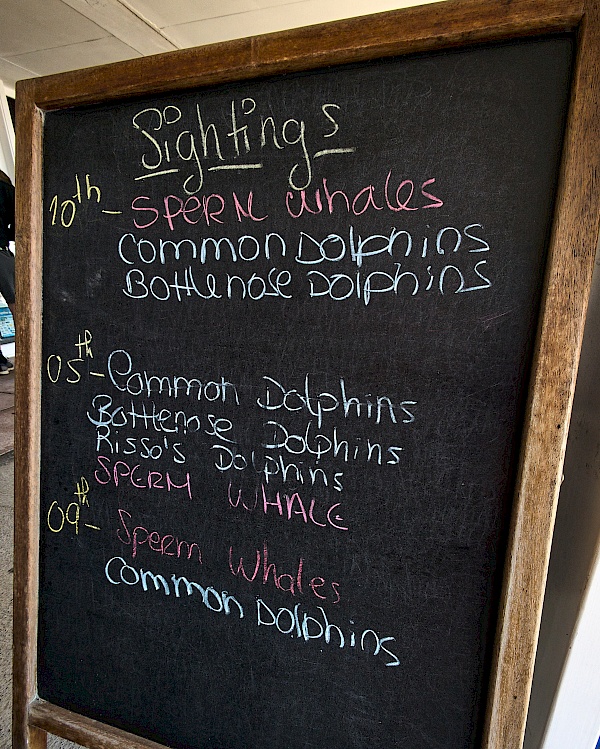 Sightings
10th - SPERM Whales
Common Dolphins
Bottlenose Dolphins
05th - Common Dolphins
Bottlenose Dolphins
Risso's Dolphins
SPERM WHALE
09th - Sperm Whales
Common Dolphins